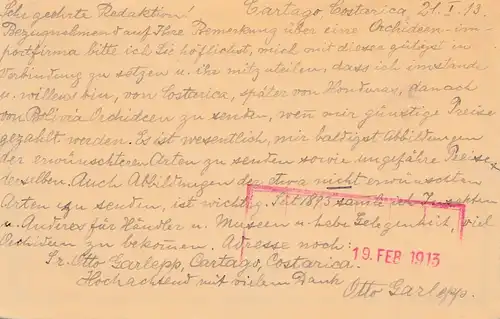 Sehr geehrte Redaktion! Cartago, Costarica, 21. I. 13.
Bezugnehmend auf Ihre Bemerkung über eine Orchideen-im-
portfirma bitte ich Sie höflichst, mich mit dieser gütigst in
Verbindung zu setzen u. ihr mitzuteilen, dass ich imstande
u. willens bin, von Costarica, später von Honduras, danach
von Bolivia Orchideen zu senden, wen mir günstige Preise
gezahlt werden. Es ist wesentlich, mir baldigst Abbildungen
der erwünschteren Arten zu senden sowie ungefähre Preise
derselben. Auch Abbildungen der etwa nicht erwünschten
Arten zu senden, ist wichtig. Seit 1893 samle ich Insekten
u. Anderes für Händler u. Museen u. habe Gelegenheit, viel
Orchideen zu bekomen. Adresse noch:
19. FEB 1913
Sr. Otto Garlepp, Cartago, Costarica.
Hochachtend mit vielem Dank
Otto Garlepp.